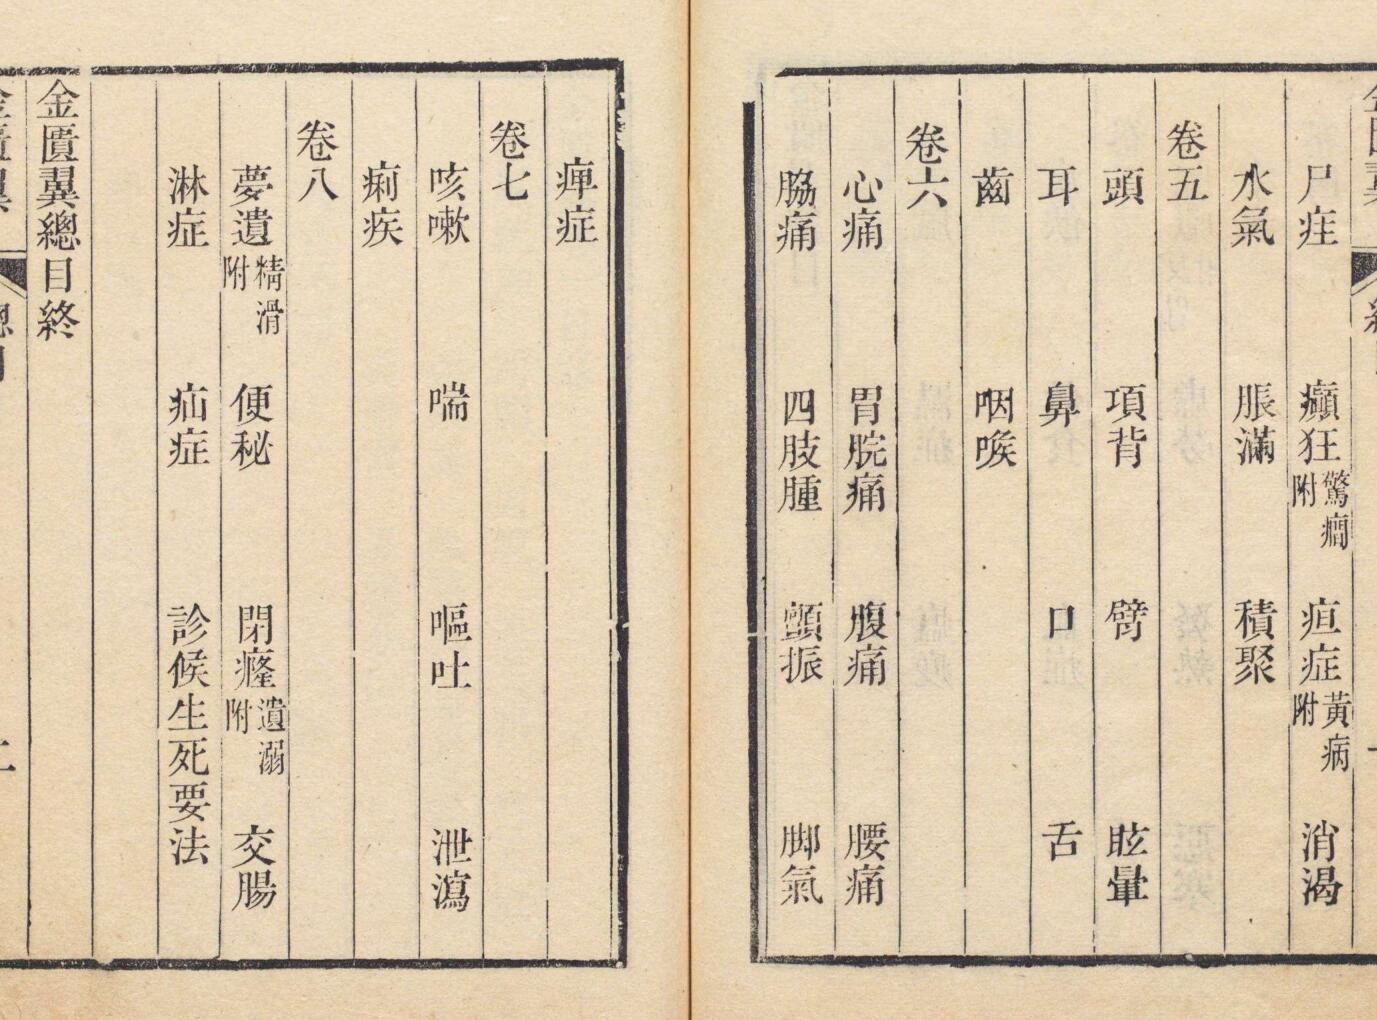 尸疰 癲狂驚癇附 疸症黃病附 消渴
水氣 脹滿 積聚
卷五
頭 項背 臂 眩暈
耳 鼻 口 舌
齒 咽喉
卷六
心痛 胃脘痛 腹痛 腰痛
脇痛 四肢腫 顫振 脚氣
痺症
卷七
咳嗽 喘 嘔吐 泄瀉
痢疾
卷八
夢遺精滑附 便秘 閉癃遺溺附 交腸
淋症 疝症 診候生死要法
金匱翼總目終